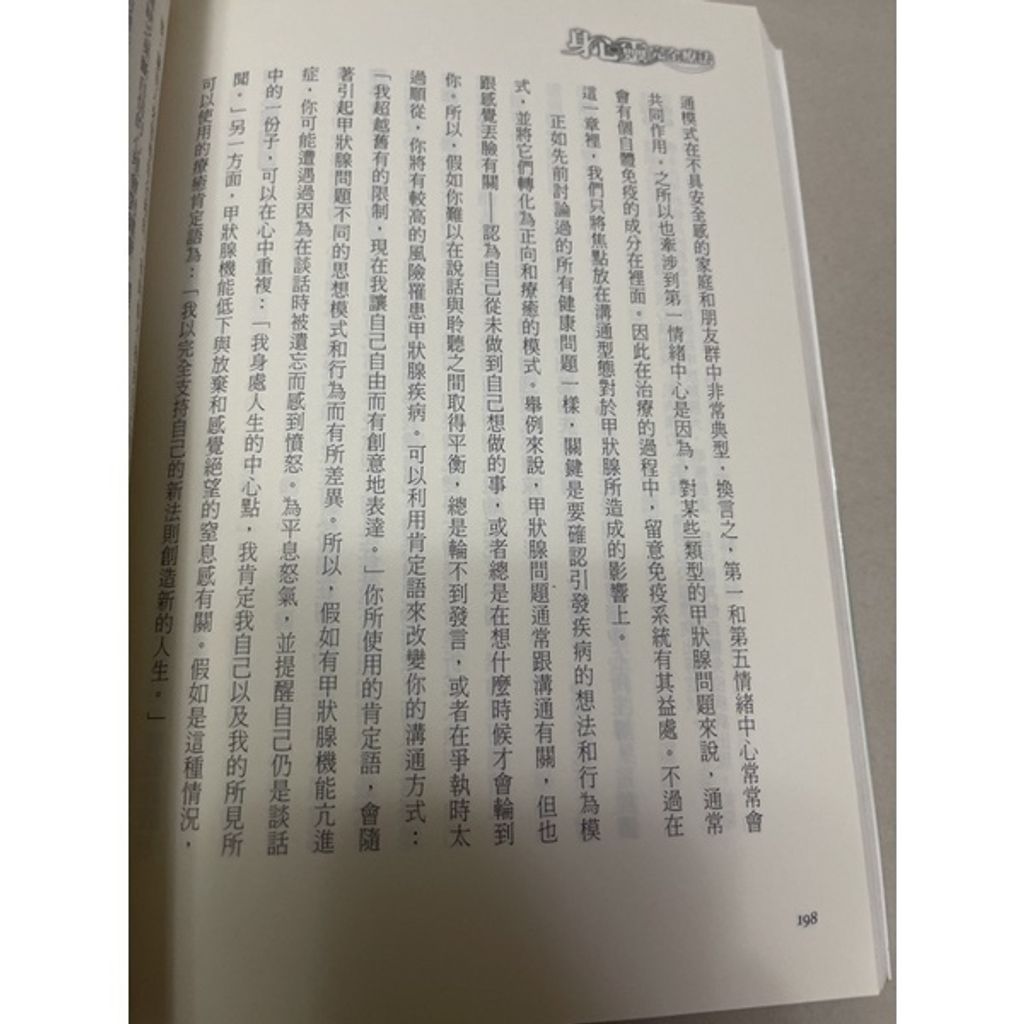 身心靈完全療法
通模式在不具安全感的家庭和朋友群中非常典型，換言之，第一和第五情緒中心常常會
共同作用，之所以也牽涉到第一情緒中心是因為，對某些類型的甲狀腺問題來說，通常
會有個自體免疫的成分在裡面。因此在治療的過程中，留意免疫系統有其益處。不過在
這一章裡，我們只將焦點放在溝通型態對於甲狀腺所造成的影響上。
正如先前討論過的所有健康問題一樣，關鍵是要確認引發疾病的想法和行為模
式，並將它們轉化為正向和療癒的模式。舉例來說，甲狀腺問題通常跟溝通有關，但也
跟感覺丟臉有關——認為自己從未做到自己想做的事，或者總是在想什麼時候才會輪到
你。所以，假如你難以在說話與聆聽之間取得平衡，總是輪不到發言，或者在爭執時太
過順從，你將有較高的風險罹患甲狀腺疾病。可以利用肯定語來改變你的溝通方式：
「我超越舊有的限制，現在我讓自己自由而有創意地表達。」你所使用的肯定語，會隨
著引起甲狀腺問題不同的思想模式和行為而有所差異。所以，假如有甲狀腺機能亢進
症，你可能遭遇過因為在談話時被遺忘而感到憤怒。為平息怒氣，並提醒自己仍是談話
中的一份子，可以在心中重複：「我身處人生的中心點，我肯定我自己以及我的所見所
聞。」另一方面，甲狀腺機能低下與放棄和感覺絕望的窒息感有關。假如是這種情況，
可以使用的療癒肯定語為：「我以完全支持自己的新法則創造新的人生。」
198